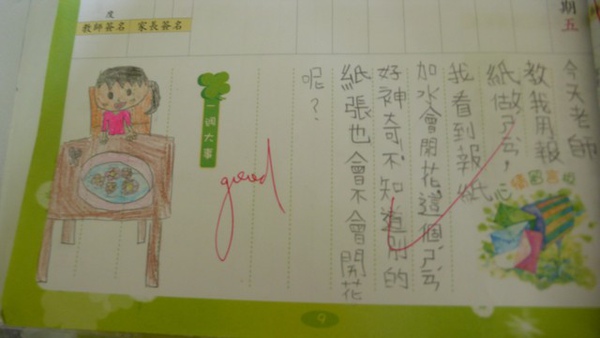 期五
今天老師
教我用報
紙做
我看到報紙
加水會開花，這個
好神奇。不知道別的
紙張也會不會開花
呢？
度
教師簽名 家長簽名
一週大事
good
9